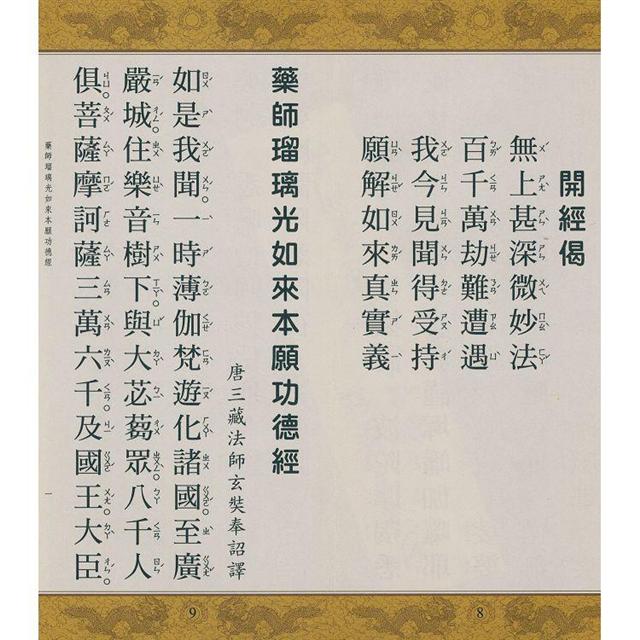 開經偈
無上甚深微妙法
百千萬劫難遭遇
我今見聞得受持
願解如來真實義
8
藥師瑠璃光如來本願功德經
唐三藏法師玄奘奉詔譯
如是我聞。一時薄伽梵遊化諸國。至廣
嚴城。住樂音樹下。與大苾芻眾。八千人
俱。菩薩摩訶薩三萬六千。及國王。大臣。
藥師瑠璃光如來本願功德經
一
9